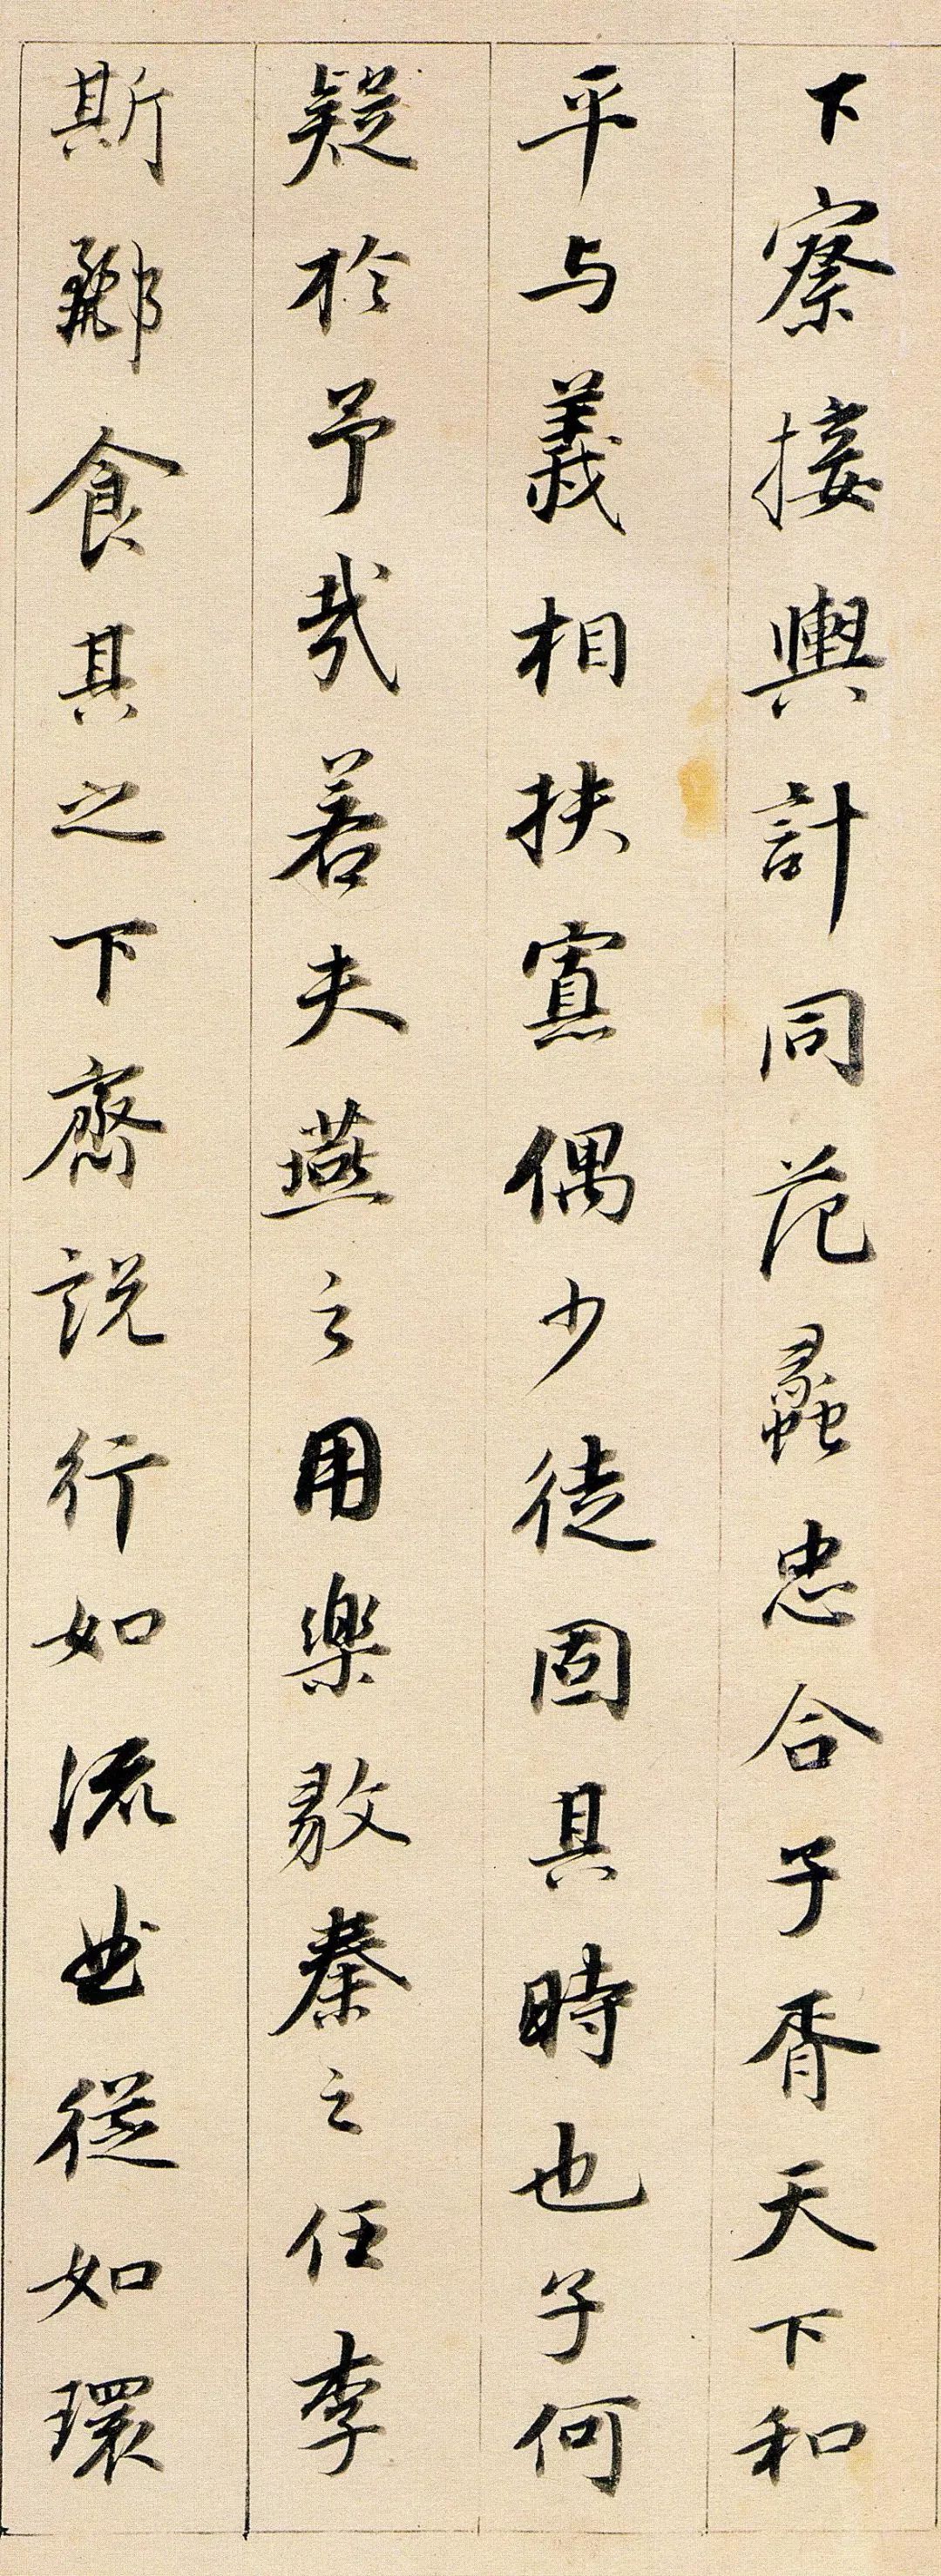 下察接輿計同范蠡忠合子胥天下和
平与義相扶寡偶少徒固其時也子何
疑於予哉若夫燕之用樂毅秦之任李
斯酈食其之下齊說行如流曲從如環